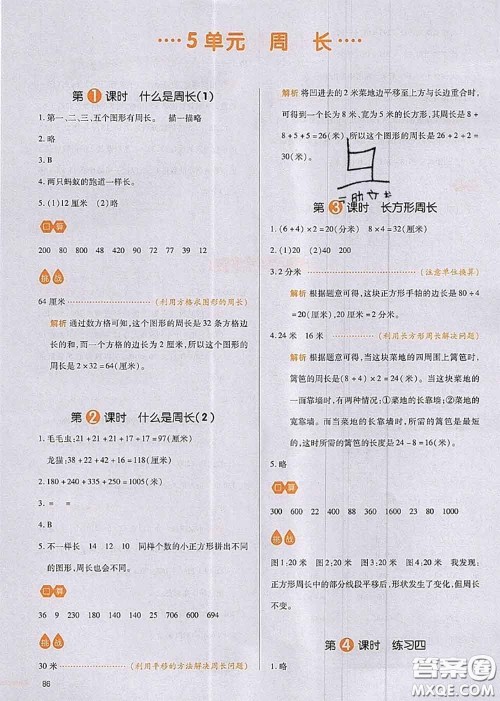 5单元 周 长
第1课时 什么是周长(1)
1.第一、二、三、五个图形有周长。 描一描略
2.略
3.B
4.两只蚂蚁的跑道一样长。
5.(1)12厘米 (2)略
口算
200 80 800 48 420 90 72 77 39 12
挑战
64厘米 (利用方格求图形的周长)
解析 通过数方格可知,这个图形的周长是32条方格边
长的和,而一个方格的边长为2厘米,所以这个图形的
周长是2×32=64(厘米)。
第2课时 什么是周长(2)
1.毛毛虫:21+21+21+17+17=97(厘米)
龙猫:38+22+42+16=118(厘米)
2.180+240+335+250+345=1350(米)
3.= =
4.B
5.不一样长 14 12 10 同样个数的小正方形拼出不同
的图形,周长可能会不同。
口算
36 9 230 180 114 140 207 1000 600 694
挑战
30米 (利用平移的方法解决周长问题)
86
解析 将凹进去的2米菜地边平移至上方与长边重合时,可
得到一个长为8米、宽为5米的长方形,其周长是8+
8+5+5=26(米),所以这个图形的周长是26+2+2=
30(米)。
第3课时 长方形周长
1.(6+4)×2=20(分米) 8×4=32(分米)
2.(1)20 (2)40 略
3.2分米 (注意单位换算)
解析 根据题意可得,这块正方形手帕的边长是80÷4
=20(厘米),20厘米=2分米。
4.24米 16米 (利用长方形周长解决问题)
解析 根据题意可得,当这块菜地的四周围上篱笆时,
篱笆的长度是(8+4)×2=24(米)。当这块菜地的一边
靠墙时,有两种情况:①菜地的长靠墙;②菜地的
宽靠墙。而当菜地的长靠墙时,此时所需的篱笆最
短,这时所需的篱笆的长度是24-8=16(米)。
5.略
口算
300 600 22 400 1000 13 1300 23 80 1000
挑战
图1:20米 图2:20米 图3:20米 图4:20米 我发现:
正方形周长中的部分线段平移后,形状发生了变化,但周长
不变。
第4课时 练习四
1.略
答案圈
MXQE.COM